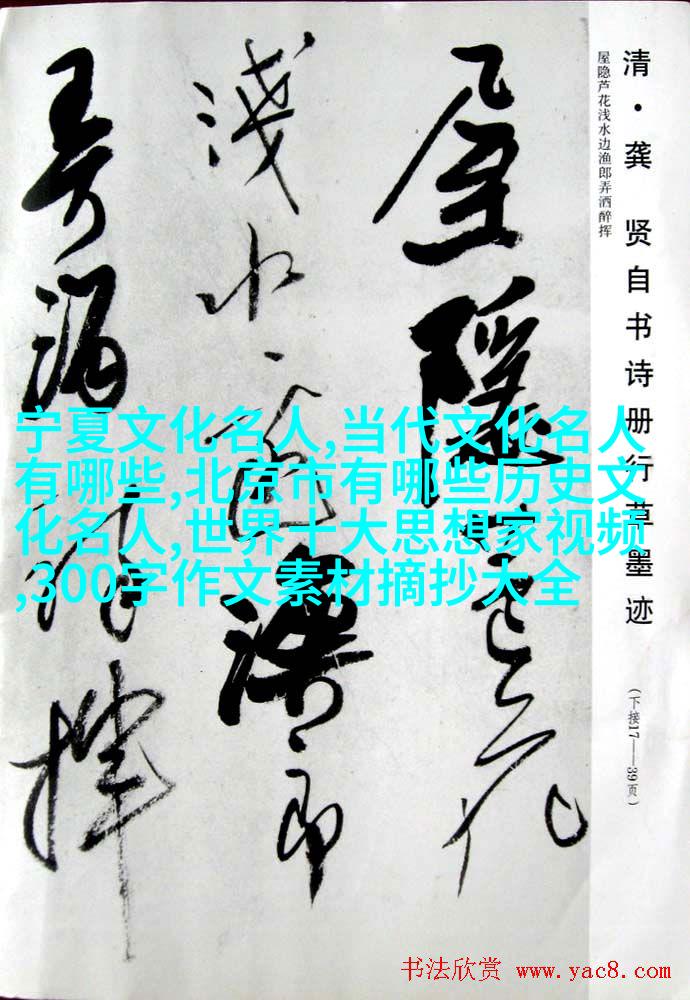 清·龚 贤自书诗册行草墨迹
(下接17——39页)
屋隐芦花浅水边渔郎弄酒醉挥
屋隐芦花
浅水边渔郎
弄酒醉挥
宁夏文化名人,当代文化名人
有哪些,北京市有哪些历史文
化名人,世界十大思想家视频
,300字作文素材摘抄大全
书法欣赏 www.yac8.com